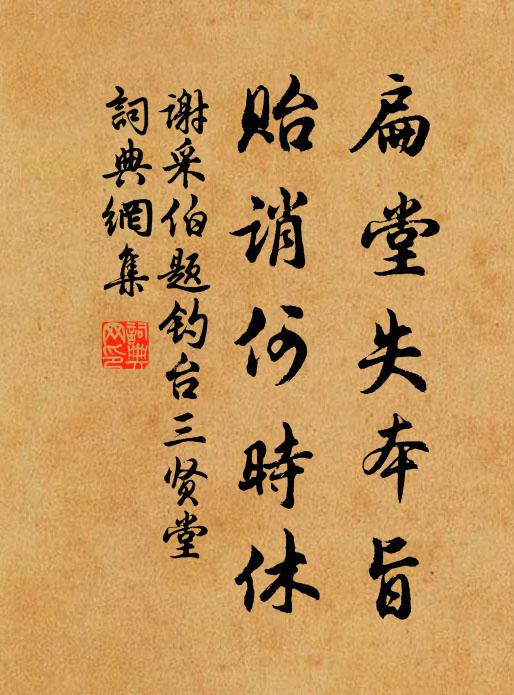 扁堂失本旨
贻誚何時休
谢采伯题钓台三贤堂
詞典網集
詞典网印